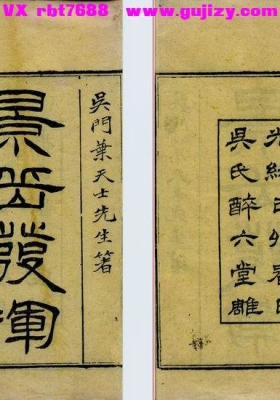 VX rbt7688 www.gujizy.com
吳門葉天士先生著
景岳發揮
光緒己卯春日
吳氏醉六堂雕